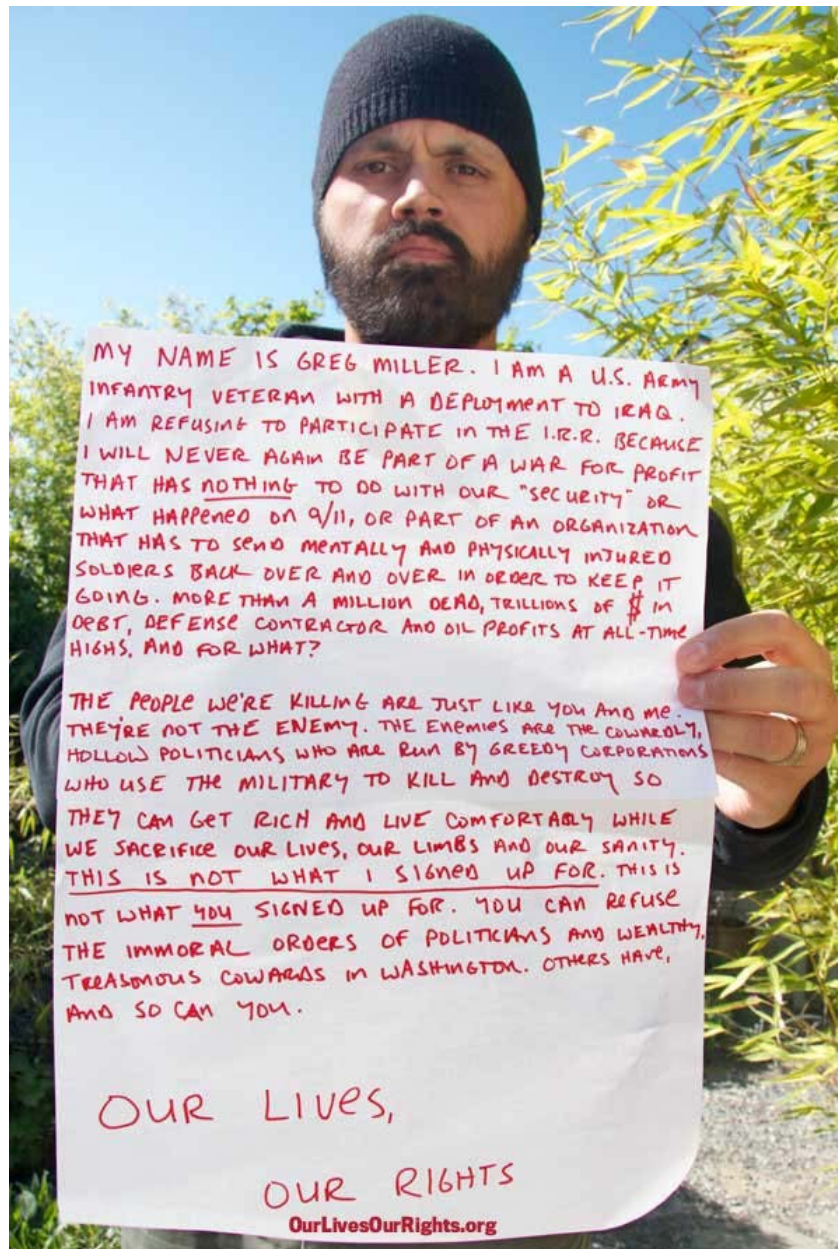 MY NAME IS GREG MILLER. I AM A U.S. ARMY
INFANTRY VETERAN WITH A DEPLOYMENT TO IRAQ.
I AM REFUSING TO PARTICIPATE IN THE I.R.R. BECAUSE
I WILL NEVER AGAIN BE PART OF A WAR FOR PROFIT
THAT HAS NOTHING TO DO WITH OUR "SECURITY" OR
WHAT HAPPENED ON 9/11, OR PART OF AN ORGANIZATION
THAT HAS TO SEND MENTALLY AND PHYSICALLY INJURED
SOLDIERS BACK OVER AND OVER IN ORDER TO KEEP IT
GOING. MORE THAN A MILLION DEAD, TRILLIONS OF $ IN
DEBT, DEFENSE CONTRACTOR AND OIL PROFITS AT ALL-TIME
HIGHS, AND FOR WHAT?
THE PEOPLE WE'RE KILLING ARE JUST LIKE YOU AND ME.
THEY'RE NOT THE ENEMY. THE ENEMIES ARE THE COWARDLY,
HOLLOW POLITICIANS WHO ARE RUN BY GREEDY CORPORATIONS
WHO USE THE MILITARY TO KILL AND DESTROY SO
THEY CAN GET RICH AND LIVE COMFORTABLY WHILE
WE SACRIFICE OUR LIVES, OUR LIMBS AND OUR SANITY.
THIS IS NOT WHAT I SIGNED UP FOR. THIS IS
NOT WHAT YOU SIGNED UP FOR. YOU CAN REFUSE
THE IMMORAL ORDERS OF POLITICIANS AND WEALTHY,
TREASONOUS COWARDS IN WASHINGTON. OTHERS HAVE,
AND SO CAN YOU.
OUR LIVES,
OUR RIGHTS
OurLivesOurRights.org